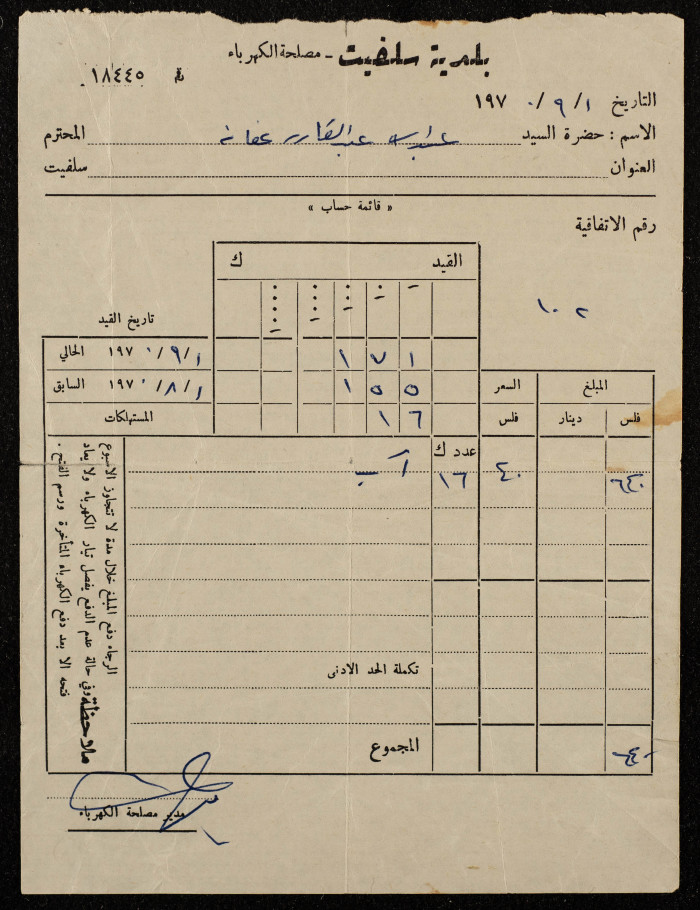 بلدية سلفيت - مصلحة الكهرباء
رقم ١٨٤٤٥
التاريخ ١ / ٩ / ١٩٧٠
الاسم : حضرة السيد عبد القادر عفانه المحترم
العنوان سلفيت
« قائمة حساب »
رقم الاتفاقية
١٠٢
القيد ك
تاريخ القيد
١٧١ ١ / ٩ / ١٩٧٠ الحالي
١٥٥ ١ / ٨ / ١٩٧٠ السابق
١٦ المستهلكات
المبلغ السعر
فلس دينار فلس
عدد ك
٦٤٠ ٤٠ ١٦ آب
تكملة الحد الادنى
المجموع ٦٤٠
ملاحظة الرجاء دفع المبلغ خلال مدة لا تتجاوز الاسبوع
وفي حالة عدم الدفع يفصل تيار الكهرباء ولا يعاد
فتحه الا بعد دفع الكهرباء المتأخرة ورسم الفتح .
مدير مصلحة الكهرباء